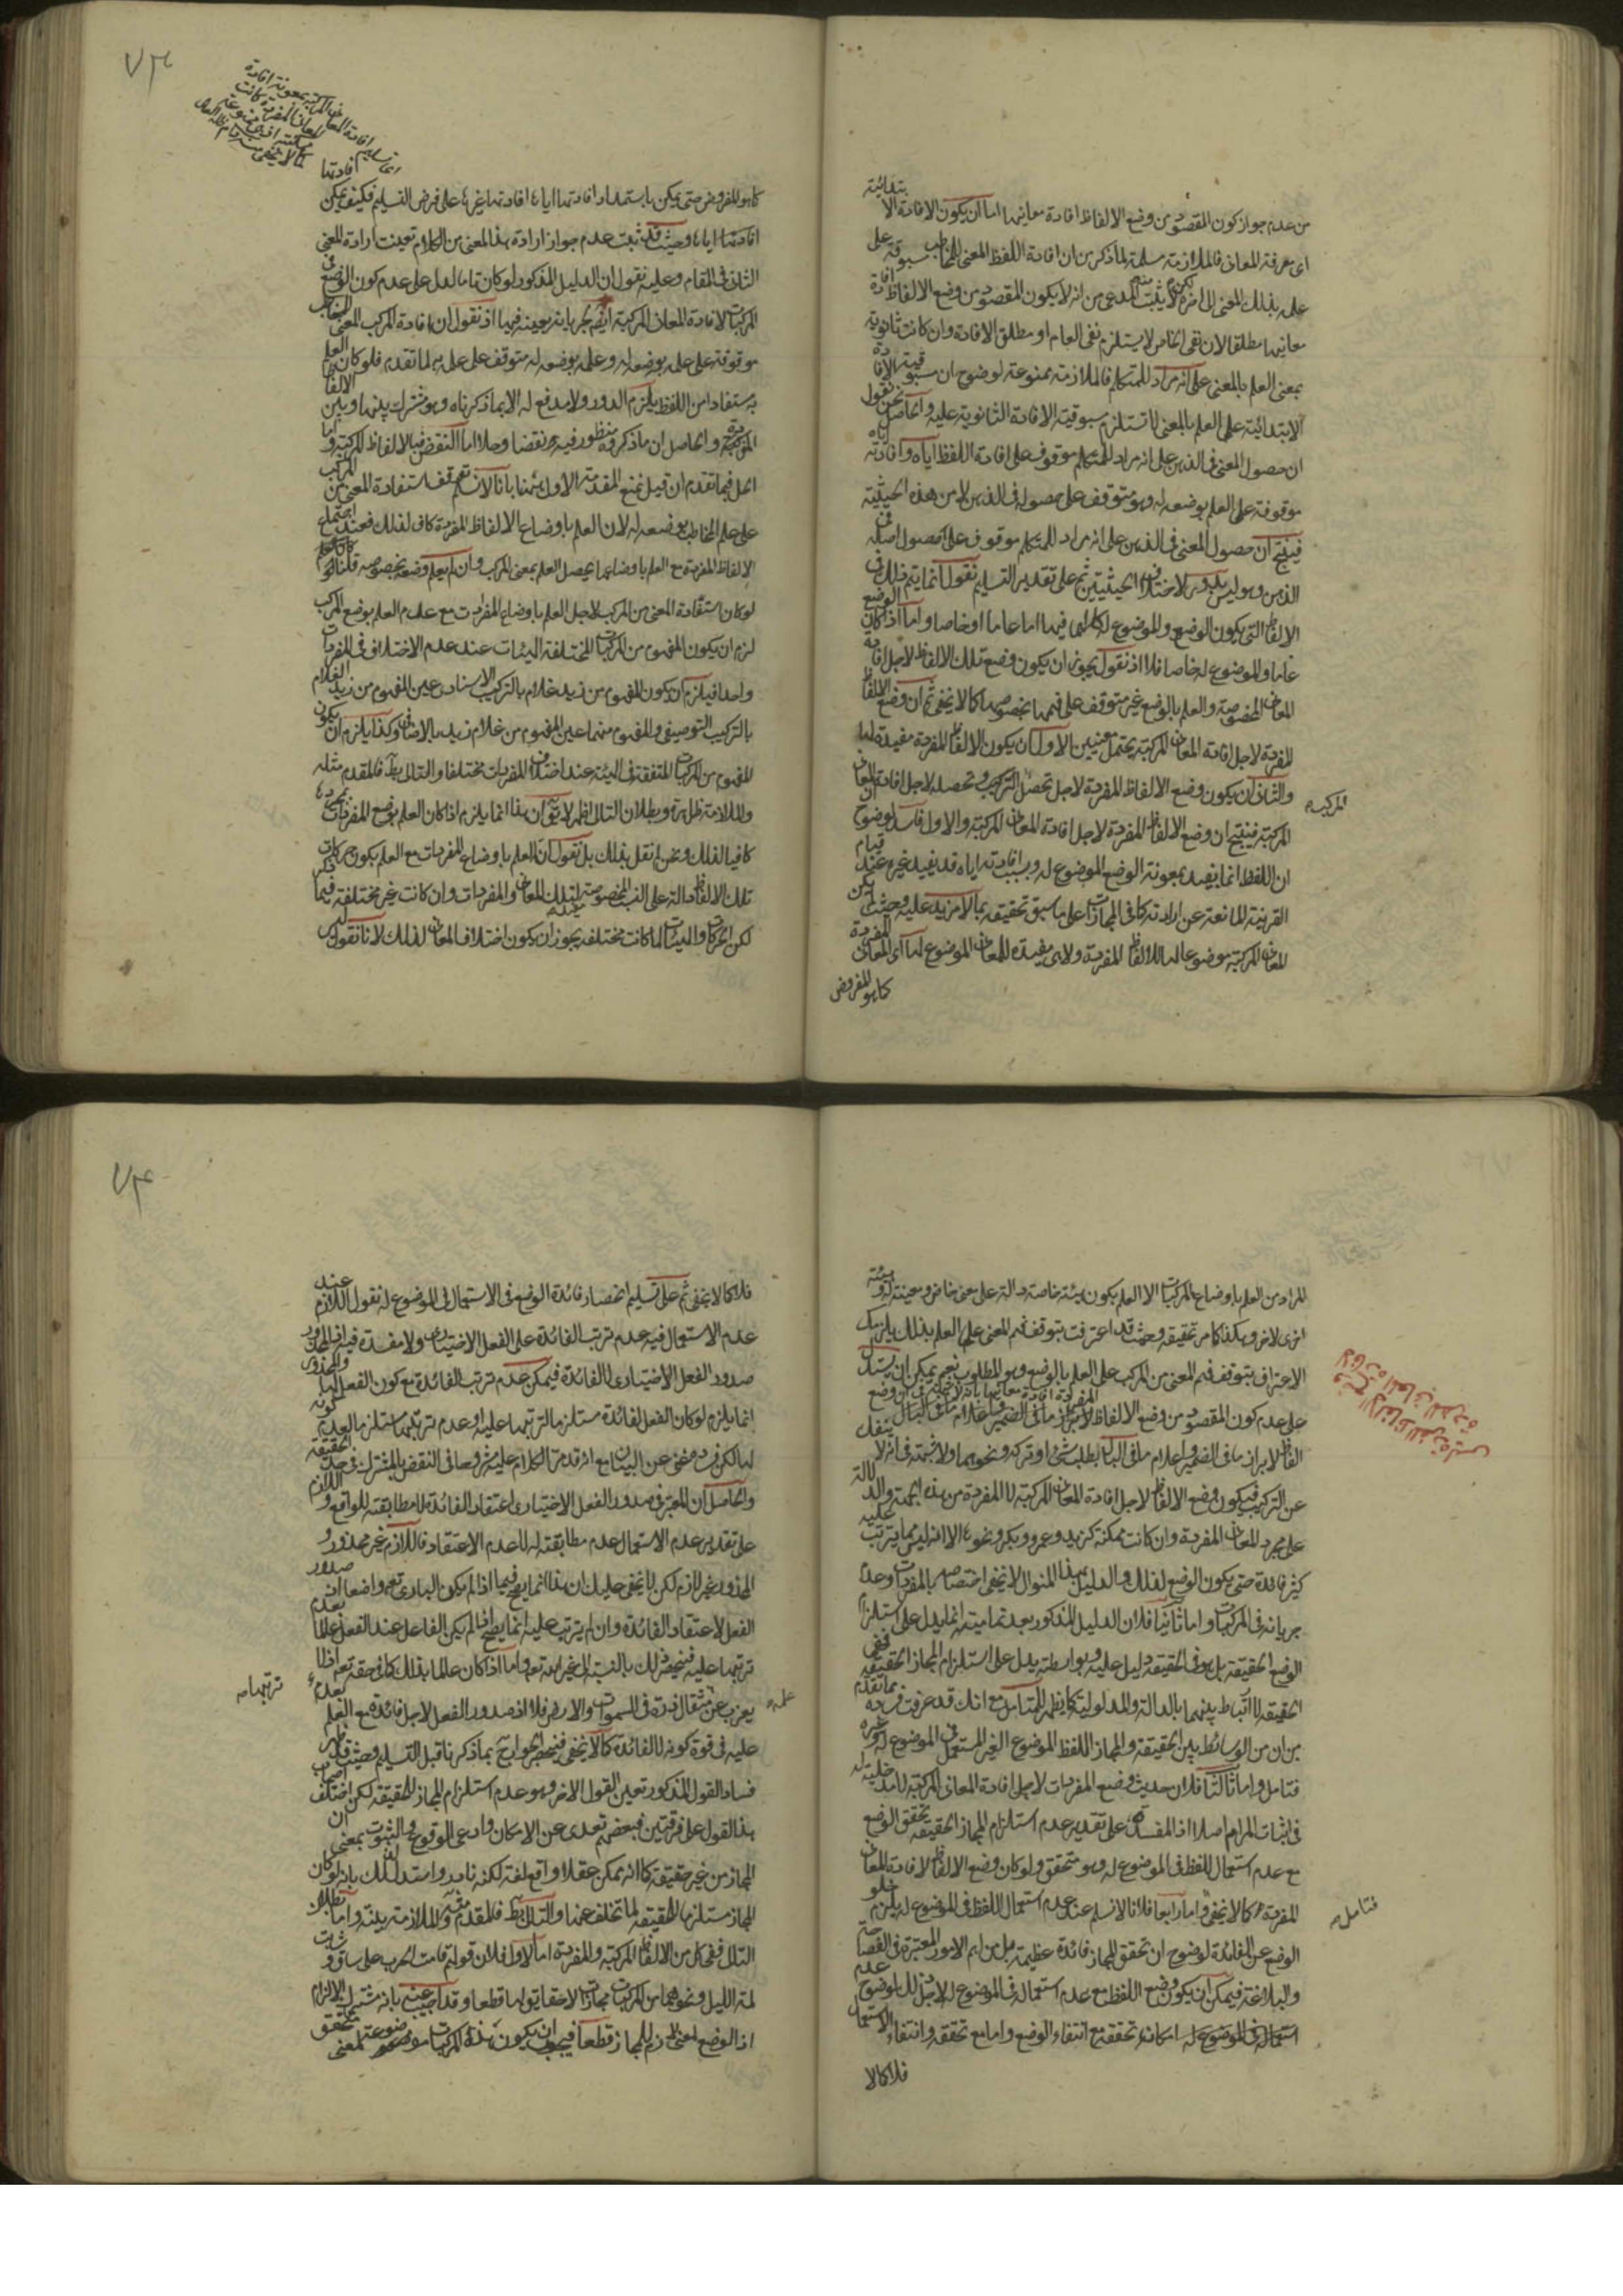 من عدم جواز كون المقصود من وضع الالفاظ افادة معانيها اما ان يكون الافادة الابتدائية
اى معرفة المعانى فالملازمة مسلمة لما ذكر من ان افادة اللفظ المعنى للمخاطب مسبوقة على
على بذلك المعنى الى اخره لكن لا يثبت منه المدعى من انه لا يكون المقصود من وضع الالفاظ افادة
معانيها مطلقا لان نفى الخاص لا يستلزم نفى العام او مطلق الافادة وان كانت ثانوية
بمعنى العلم بالمعنى على انه مراد للمتكلم فالملازمة ممنوعة لوضوح ان مسبوقية الافادة
الابتدائية على العلم بالمعنى لا تستلزم مسبوقية الافادة الثانوية عليه والحاصل نحن نقول
ان حصول المعنى فى الذهن على انه مراد للمتكلم موقوف على افادة اللفظ اياه وافادته اياه
موقوفة على العلم بوضعه له وهو متوقف على حصوله فى الذهن لا من هذه الحيثية
فينتج ان حصول المعنى فى الذهن على انه مراد للمتكلم موقوف على حصول اصله فى
الذهن وهو ليس بدور لاختلاف الحيثيتين ثم على تقدير التسليم نقول انما يتم ذلك فى
الالفاظ التى يكون الوضع والموضوع له كلاهما فيها اما عاما او خاصا واما اذا كان الوضع
عاما والموضوع له خاصا فلا اذ نقول يجوز ان يكون وضع تلك الالفاظ لاجل افادة
المعانى المخصوصة والعلم بالوضع غير متوقف على فهمها بخصوصها كما لا يخفى ثم ان وضع الالفاظ
المفردة لاجل افادة المعانى المركبة يحتمل معنيين الاول ان يكون الالفاظ المفردة مفيدة لها
والثانى ان يكون وضع الالفاظ المفردة لاجل تحصل التركيب وتحصله لاجل افادة المعانى
المركبة فينتج ان وضع الالفاظ المفردة لاجل افادة المعانى المركبة والاول فاسد لوضوح
المركبة
ان اللفظ انما يفيد بمعونة الوضع الموضوع له وبسبب افادته اياه قد يفيد غيره عند قيام
القرينة المانعة عن ارادته كما فى المجازات على ما سبق تحقيقه بما لا مزيد عليه وحيث لم يكن
المعانى المركبة موضوعا لها للالفاظ المفردة ولا هى مفيدة للمعانى الموضوع لها اى المعانى المفردة
كما هو المفروض
٧٣
كما هو المفروض حتى يمكن باستمداد افادتها اياها افادتها غيرها على فرض التسليم فكيف يمكن
افادتها اياها وحيث قد ثبت عدم جواز ارادة هذا المعنى من الكلام تعينت ارادة المعنى
الثانى فى المقام وعليه نقول ان الدليل المذكور لو كان تاما لدل على عدم كون الوضع فى
المركبات لافادة المعانى المركبة ايضا لجريانه بعينه فيها اذ نقول ان افادة المركب المعنى للمخاطب
موقوفة على علمه بوضعه له وعلمه بوضعه له متوقف على علمه به لما تقدم فلو كان العلم
به مستفادا من اللفظ يلزم الدور ولا مدفع له الا بما ذكرناه وهو مشترك بينها وبين الالفاظ
المفردة والحاصل ان ما ذكروه منظور فيه نقضا وحلا اما النقض فبالالفاظ المركبة واما
الحل فبما تقدم ان قيل نمنع المقدمة الاولى هنا بانا لا نسلم توقف استفادة المعنى من المركب
على علم المخاطب بوضعه له لان العلم باوضاع الالفاظ المفردة كاف لذلك فعند اجتماع
الالفاظ المفردة مع العلم باوضاعها يحصل العلم بمعنى المركب وان لم يعلم وضعه بخصوصه قلنا
لو كان استفادة المعنى من المركب لاجل العلم باوضاع المفردات مع عدم العلم بوضع المركب
لزم ان يكون المفهوم من المركبات المختلفة الهيئات عند عدم الاختلاف فى المفردات
واحدا فيلزم ان يكون المفهوم من زيد غلام بالتركيب الاسنادى عين المفهوم من زيد الغلام
بالتركيب التوصيفى والمفهوم منهما عين المفهوم من غلام زيد بالاضافى وكذا يلزم ان يكون
المفهوم من المركبات المتفقة فى الهيئة عند اختلاف المفردات مختلفا والتالى بط فالمقدم مثله
والملازمة ظاهرة وبطلان التالى اظهر لا يق ان هذا انما يلزم اذا كان العلم بوضع المفردات بمجرده
كافيا لذلك ونحن لم نقل بذلك بل نقول ان العلم باوضاع المفردات مع العلم بكون حركات
تلك الالفاظ دالة على النسب المخصوصة لتلك المعانى والمفردات وان كانت غير مختلفة فيما ذكر
لكن الحركات والهيئات لما كانت مختلفة يجوز ان يكون اختلاف المعانى لذلك لانا نقول ليس
المراد من العلم باوضاع المركبات الا العلم بكون هيئة خاصة دالة على معنى خاص ومعينة له وهيئة
اخرى لاخر وهكذا كما مر تحقيقه وحيث قد اعترفت بتوقف فهم المعنى على العلم بذلك يلزمك
الاعتراف بتوقف فهم المعنى من المركب على العلم بالوضع وهو المطلوب نعم يمكن ان يستدل
على عدم كون المقصود من وضع الالفاظ المفردة افادة معانيها بانه لا شبهة فى ان وضع
الالفاظ لابراز ما فى الضمير واعلام ما فى البال بطلب شىء او تركه ونحوهما ولا شبهة فى انه لا ينفك
عن التركيب فيكون وضع الالفاظ لاجل افادة المعانى المركبة لا المفردة من هذه الجهة والدلالة
على مجرد المعانى المفردة وان كانت ممكنة كزيد وعمرو وبكر ونحوها الا انه ليس مما يترتب عليه
كثير فائدة حتى يكون الوضع لذلك والدليل بهذا المنوال لا يخفى اختصاصه بالمفردات وعدم
جريانه فى المركبات واما ثانيا فلان الدليل المذكور بعد تماميته انما يدل على استلزام
الوضع الحقيقة بل هو فى الحقيقة دليل عليه وبواسطته يدل على استلزام المجاز الحقيقة ففى
الحقيقة لا ارتباط بينهما بالدالة والمدلولية كما يظهر للمتامل مع انك قد عرفت فساده بما تقدم
من ان من الوسائط بين الحقيقة والمجاز اللفظ الموضوع الغير المستعمل فى الموضوع له وغيره
فتامل واما ثالثا فلان حديث وضع المفردات لاجل افادة المعانى المركبة لا مدخلية له
فى اثبات المرام اصلا اذ المفسدة على تقدير عدم استلزام المجاز الحقيقة تحقق الوضع
مع عدم استعمال اللفظ فى الموضوع له وهو متحقق ولو كان وضع الالفاظ لافادة المعانى
المفردة كما لا يخفى واما رابعا فلانا لا نسلم عند عدم استعمال اللفظ فى الموضوع له يلزم خلو
فتامل
الوضع عن الفائدة لوضوح ان تحقق المجاز فائدة عظيمة بل من اهم الامور المعتبرة فى الفصاحة
والبلاغة فيمكن ان يكون وضع اللفظ مع عدم استعماله فى الموضوع له لاجل ذلك لوضوح عدم
استعماله فى الموضوع له امكانه تحققه مع انتفاء الوضع واما مع تحققه وانتفاء الاستعمال
فلا كما لا
٧٤
فلا كما لا يخفى ثم على تسليم انحصار فائدة الوضع فى الاستعمال فى الموضوع له نقول اللازم عند
عدم الاستعمال فيه عدم ترتب الفائدة على الفعل الاختيارى ولا مفسدة فيه انما المحذور
صدور الفعل الاختيارى لا لفائدة فيمكن عدم ترتب الفائدة مع كون الفعل لها والمحذور
انما يلزم لو كان الفعل لفائدة مستلزما لترتبها عليه او عدم ترتبها مستلزما لعدم كونه
لها لكن فساده مغنى عن البيان مع انه قد مر الكلام عليه مشروحا فى النقض بالمشترك فى حد الحقيقة
والحاصل ان المعتبر فى صدور الفعل الاختيارى اعتقاد الفائدة لا مطابقته للواقع واللازم
على تقدير عدم الاستعمال عدم مطابقته له لا عدم الاعتقاد فاللازم غير محذور و
المحذور غير لازم لكن لا يخفى عليك ان هذا انما يصح فيما اذا لم يكن البارى تعم واضعا لان صدور
الفعل لاعتقاد الفائدة وان لم يترتب عليه انما يصح اذا لم يكن الفاعل عند الفعل عالما بعدم
ترتبها عليه فيصح ذلك بالنسبة الى غير الله تعم واما اذا كان عالما بذلك كما فى حقه تعم اذ لا
يعزب عن علمه مثقال ذرة فى السموات والارض فلا اذ صدور الفعل لاجل فائدة مع العلم بعدم
ترتبها
عليه فى قوة كونه لا لفائدة كما لا يخفى فينحصر الجواب ح بما ذكرنا قبل التسليم وحيث قد ظهر
فساد القول المذكور تعين القول الاخر وهو عدم استلزام المجاز للحقيقة لكن اختلف اصحاب
هذا القول على فرقتين فبعضهم تعدى عن الامكان وادعى الوقوع والثبوت بمعنى ان
المجاز من غير حقيقة كما انه ممكن عقلا واقع لغة لكنه نادر واستدل لذلك بانه لو كان
المجاز مستلزما للحقيقة لما تخلف عنها والتالى بط فالمقدم مثله والملازمة بينة واما بطلان
التالى ففى كل من الالفاظ المركبة والمفردة اما الاول فلان قولهم قامت الحرب على ساق و شابت
لمة الليل ونحوهما من المركبات مجازات لا حقائق لها قطعا وقد اجيب عنه بانه مشترك الالزام
اذ الوضع لمعنى لازم للمجاز قطعا فيجب ان يكون هذه المركبات موضوعة لمعنى متحقق